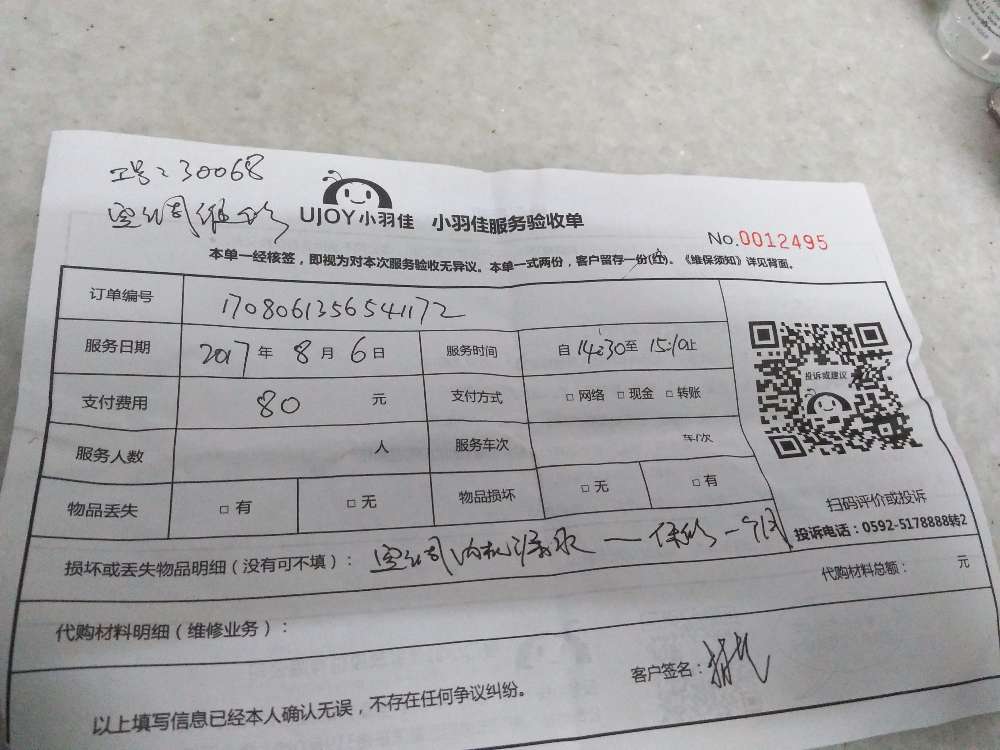 工号：30068
空调维修
UJOY小羽佳 小羽佳服务验收单
No.0012495
本单一经核签，即视为对本次服务验收无异议。本单一式两份，客户留存一份(红)。《维保须知》详见背面。
订单编号 1708061356541172
服务日期 2017年8月6日 服务时间 自14:30至15:10止
支付费用 80元 支付方式 □网络 □现金 □转账
服务人数 人 服务车次 车/次
物品丢失 □有 □无 物品损坏 □无 □有
投诉或建议
扫码评价或投诉
投诉电话：0592-5178888转2
损坏或丢失物品明细（没有可不填）：空调内机漏水 — 保修一个月
代购材料总额： 元
代购材料明细（维修业务）：
客户签名：
以上填写信息已经本人确认无误，不存在任何争议纠纷。